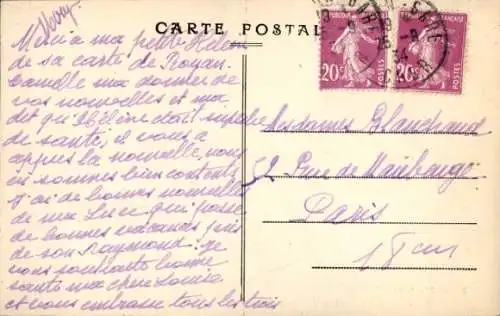 CARTE POSTAL
Merci à ma petite Hélène
de sa carte de Royan.
Camille m'a donner de
vos nouvelles et m'a
dit qu'Hélène était superbe
de santé, et vous a
appris la nouvelle, nous
en sommes bien contents
J'ai de bonnes nouvelles
de ma Luce qui passe
de bonnes vacances près
de son Raymond. Je
vous souhaite bonne
santé ma chère Louise
et vous embrasse tous les trois
20c
POSTES
20c
POSTES
Mesdames Blanchard
52 Rue de Maubeuge
Paris
18em